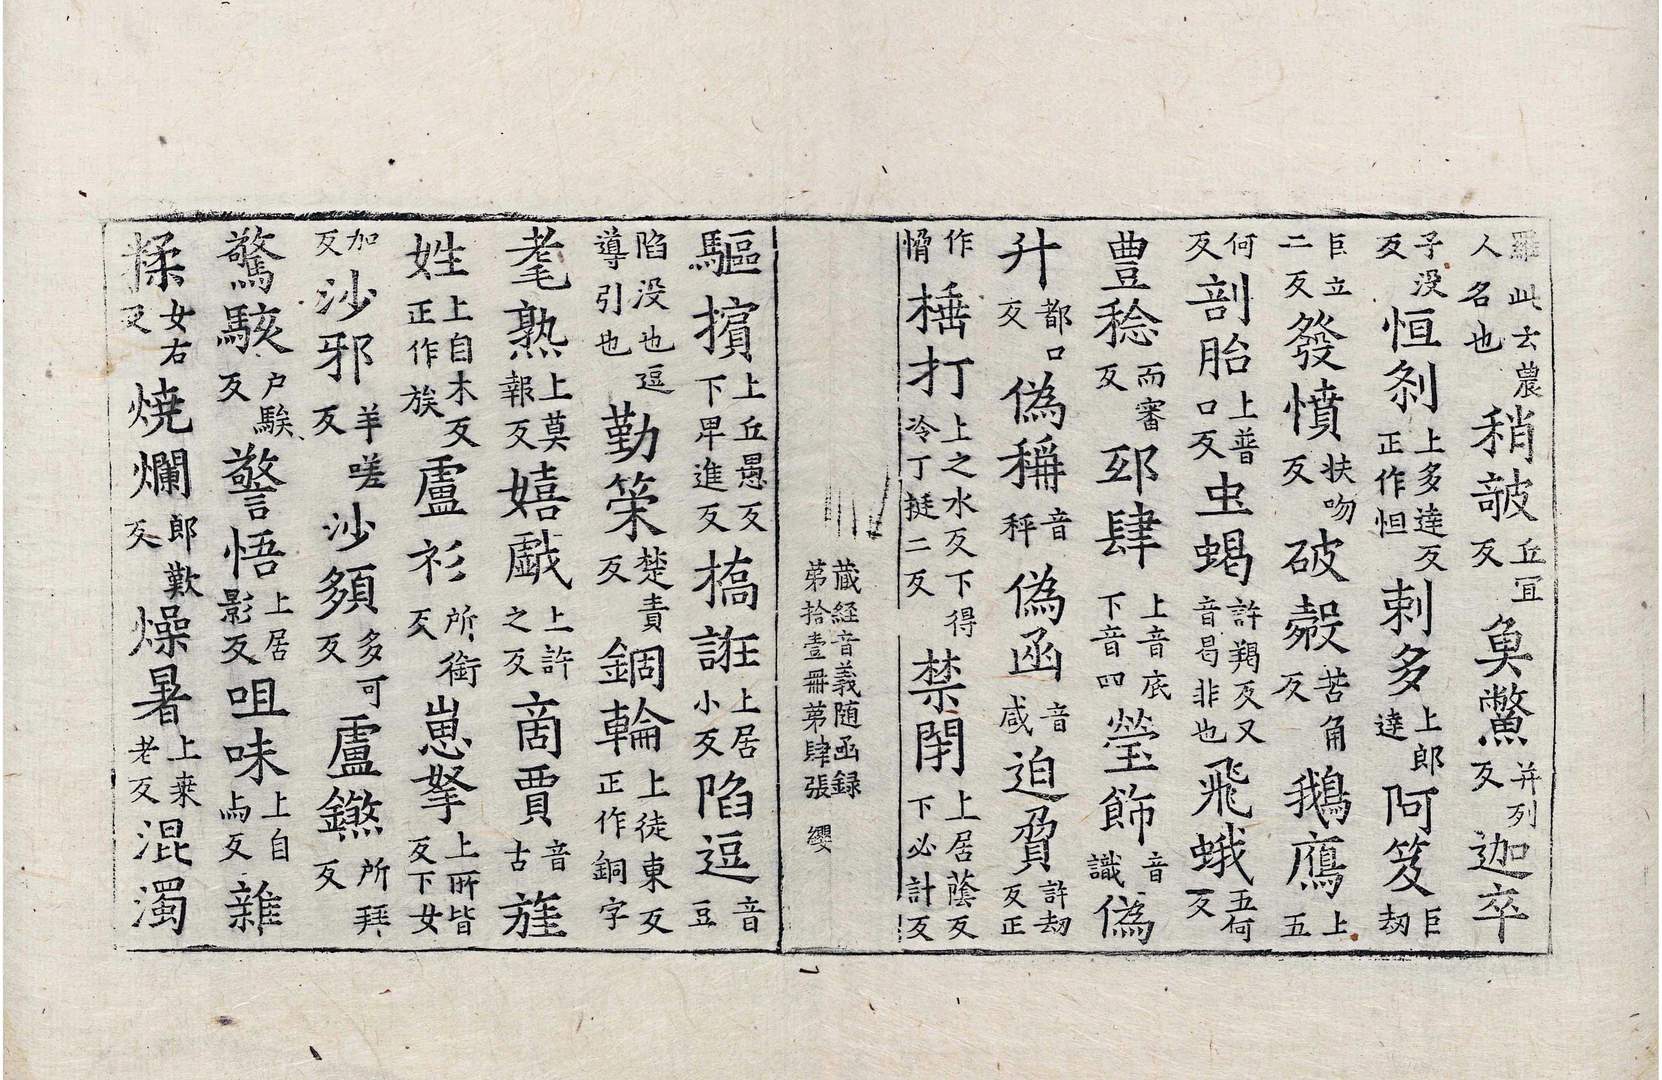 羅此云農人名也稍詖丘冝反𩵋鷩并列反迦卒
子没反恒剎上多達反正作怛剌多上郎達阿笈巨劫
巨立二反發憤扶吻反破㱿苦角反鵝鴈上五
何反剖胎上普口反虫蝎許羯反又音曷非也飛蛾五何反
豊稔而審反邳肆上音㡳下音四瑩飾音識偽
升都口反偽稱音秤偽函音咸迫脅許劫反正
作愶棰打上之水反下得冷丁挺二反禁閇上居䕃反下必計反
藏経音義随函録第拾壹冊苐肆張 纓
驅擯上丘愚反下卑進反撟誑上居小反陷逗音豆
陷没也逗導引也勤筞楚責反錮輪上徒東反正作銅字
耄熟上莫報反嬉戱上許之反啇賈音古旌
姓上自木反正作族盧衫所銜反崽拏上所皆反下女
加反沙邪羊嗟反沙頞多可反盧䥫所拜反
驚駭户騃反警悟上居影反咀味上自与反雜
揉女右反燒爛郎歎反燥暑上桒老反混濁